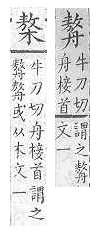 牛刀切舟接首
謂之
文一
牛刀切舟接首謂之
或从木文一